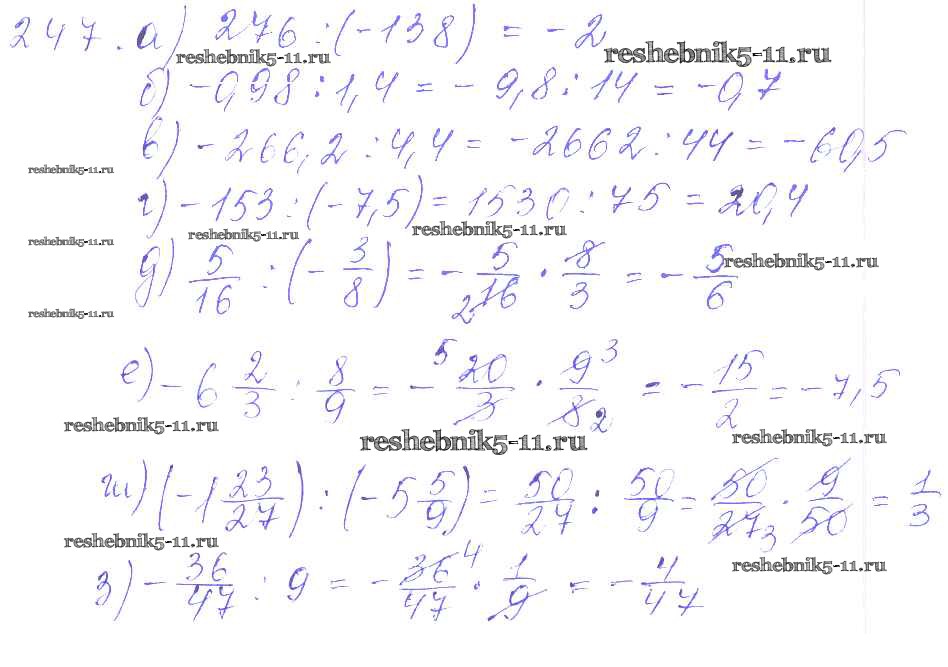 247. а) 276 : (-138) = -2
reshebnik5-11.ru reshebnik5-11.ru
б) -0,98 : 1,4 = -9,8 : 14 = -0,7
в) -266,2 : 4,4 = -2662 : 44 = -60,5
reshebnik5-11.ru
г) -153 : (-7,5) = 1530 : 75 = 20,4
reshebnik5-11.ru reshebnik5-11.ru reshebnik5-11.ru
д) 5/16 : (-3/8) = -5/16 2 · 8/3 = -5/6
reshebnik5-11.ru
reshebnik5-11.ru
е) -6 2/3 : 8/9 = -5 20/3 · 9 3/8 2 = -15/2 = -7,5
reshebnik5-11.ru reshebnik5-11.ru reshebnik5-11.ru
ж) (-1 23/27) : (-5 5/9) = 50/27 : 50/9 = 50/27 3 · 9/50 = 1/3
reshebnik5-11.ru reshebnik5-11.ru
з) -36/47 : 9 = -36 4/47 · 1/9 = -4/47